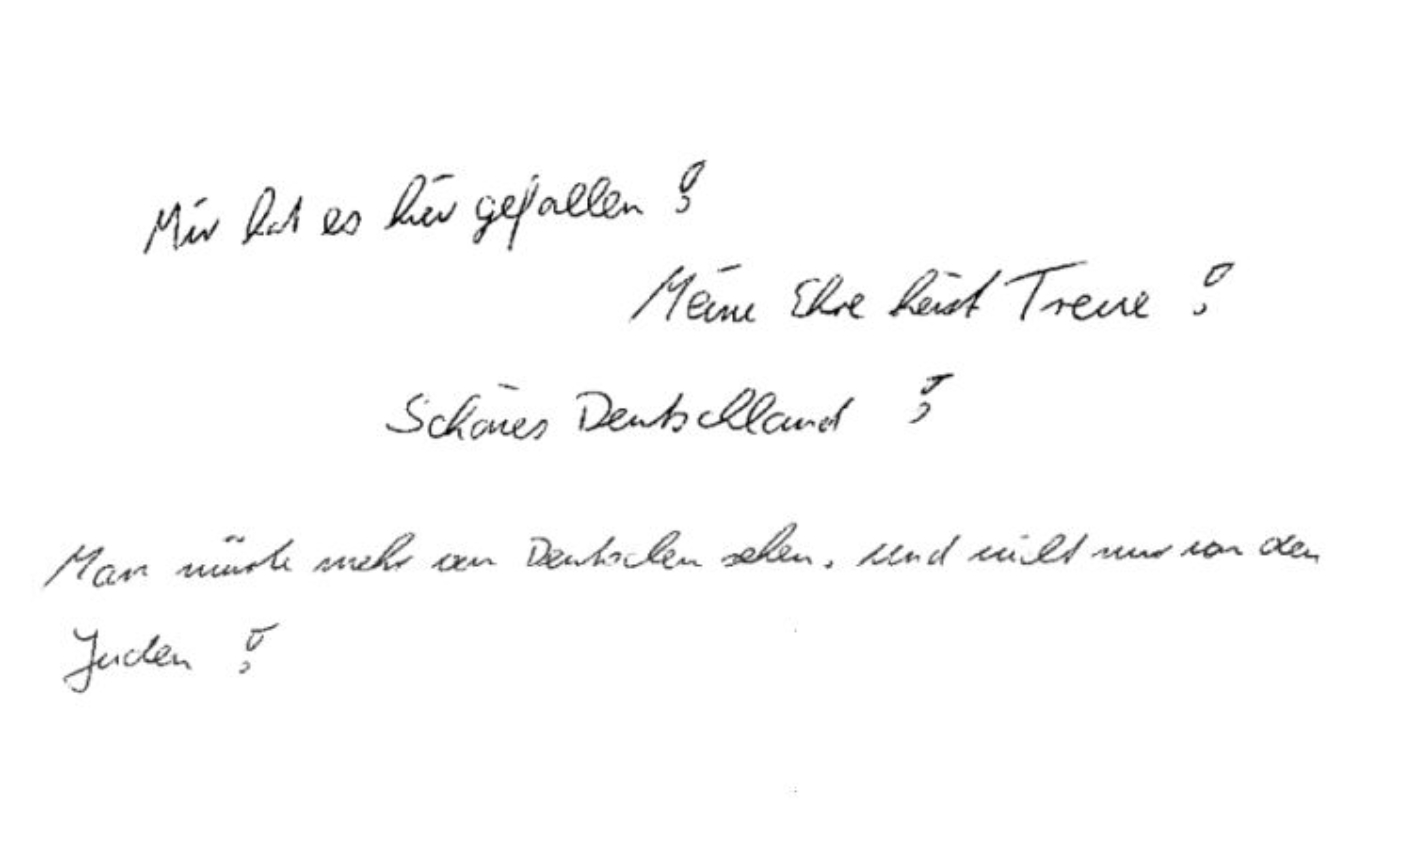 Mir hat es hier gefallen!
Meine Ehre heist Treue!
Schönes Deutschland!
Man müste mehr von Deutschen sehen, und nicht nur von den
Juden!